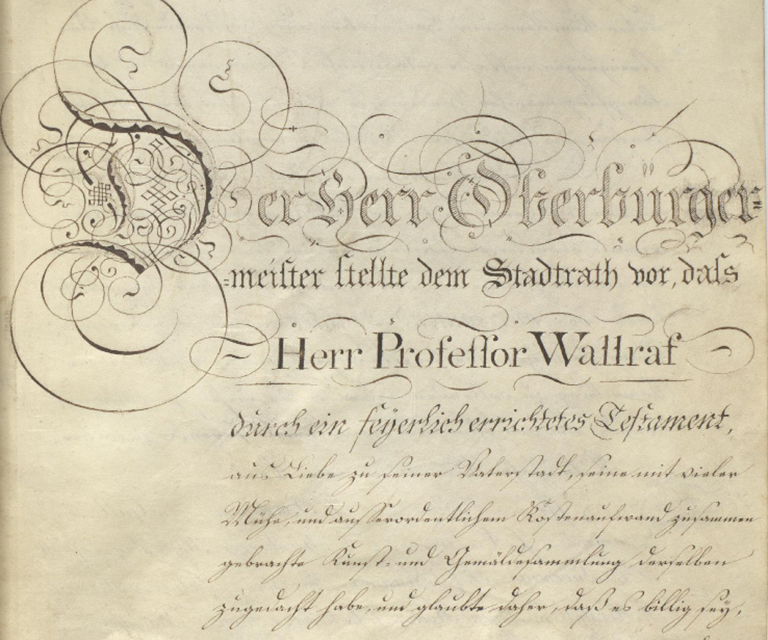 Der Herr Oberbürger-
-meister stellte dem Stadtrath vor, dass
Herr Professor Wallraf
durch ein feyerlich errichtetes Testament,
aus Liebe zu seiner Vaterstadt, seine mit vieler
Mühe, und ausserordentlichem Kostenaufwand zusammen
gebrachte Kunst- und Gemäldesammlung derselben
zugedacht habe, und glaubte daher, daß es billig sey,